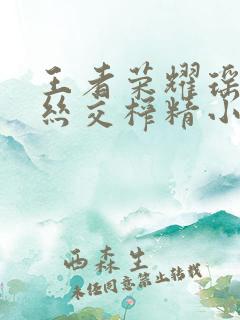 王者荣耀瑶
丝交榨精小
西森生
未经同意禁止转载